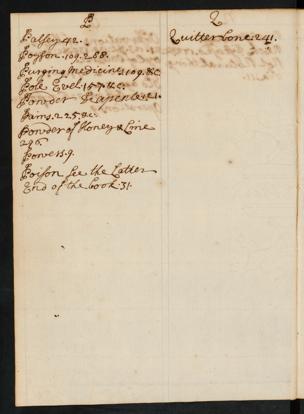 P
Palsey 42.
Poyson. 109. 288.
Purging medicines. 109. &c.
Pole Evel. 157. &c.
Powder
Pains. 225. &c.
Powder of Honey & Lime
296.
Powers. 9.
Poison See the Latter
End of the book. 31.
Q
Quitter bone. 241.